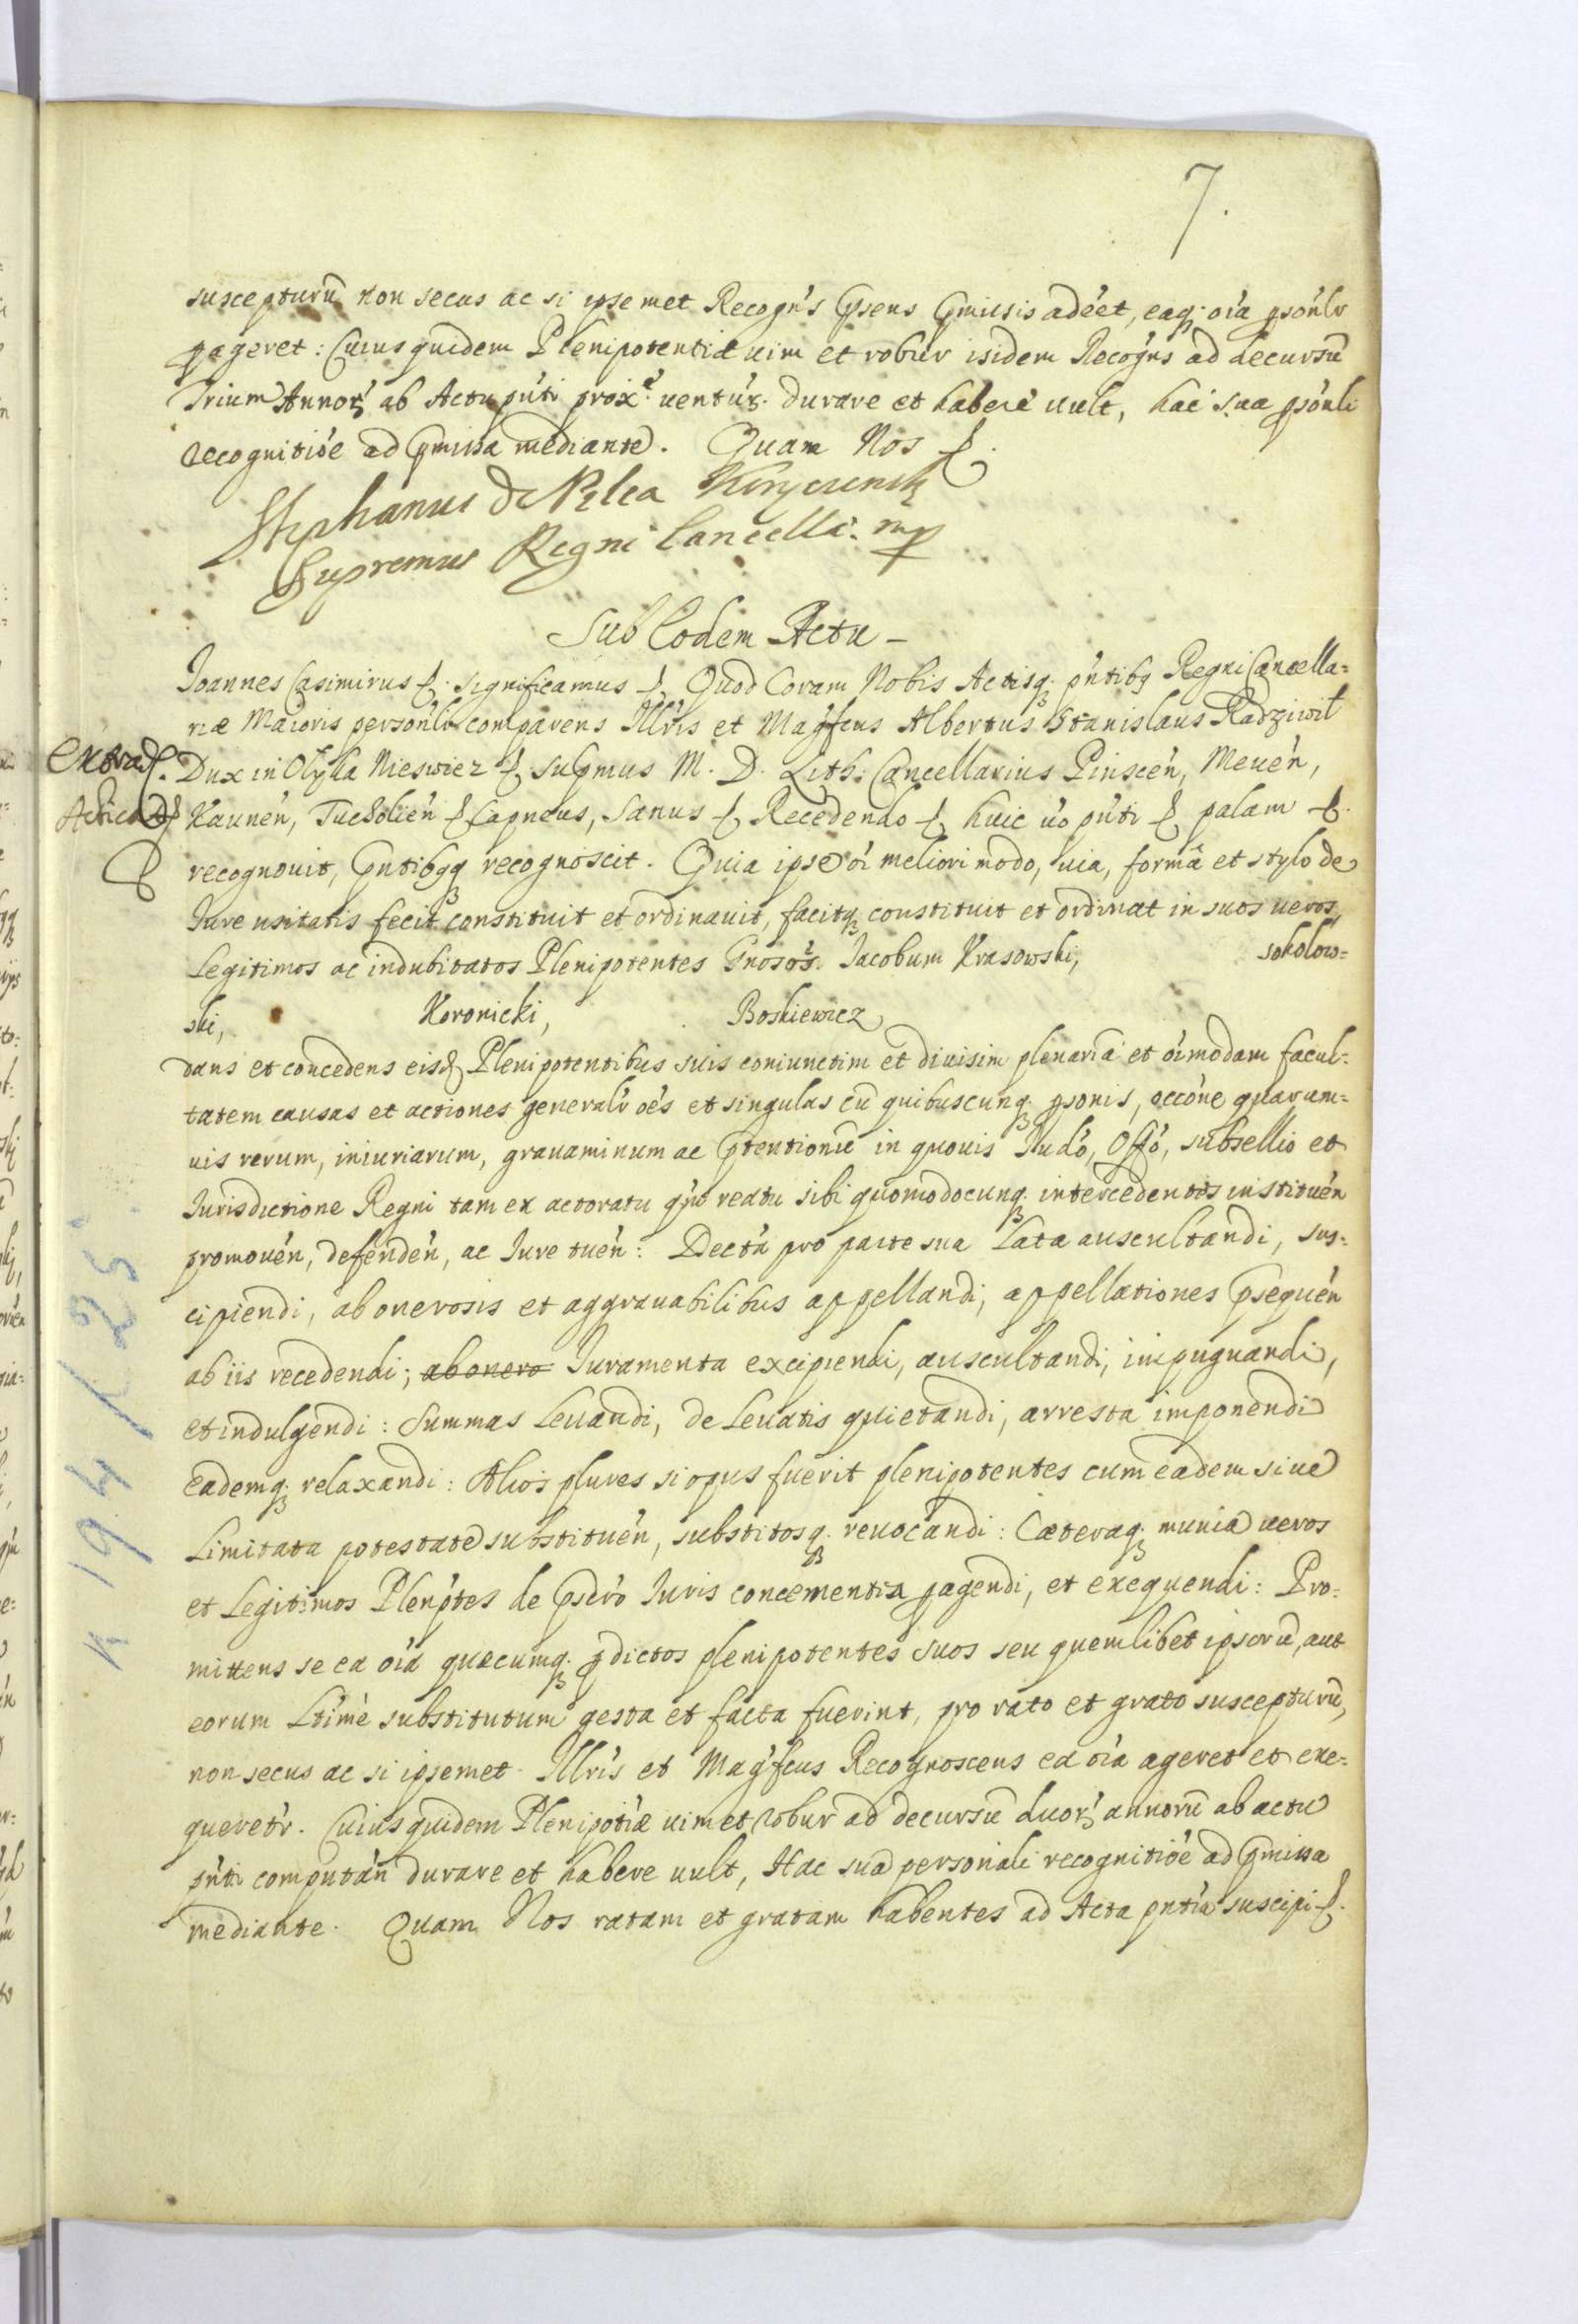 7.
suscepturū non secus ac si ipsemet Recogn's p̄sens p̄missis adeét, eaq; oía psonlr
pageret: Cuius quidem Plenipotentiæ uim et robur isidem Recogns ad decursū
Trium Annorꝝ ab Actu pn̄ti prox.e uentúr. durare et habere uult, hac sua psonli
recognitióe ad p̄missa mediante. Quam Nos etc.
Stephanus de Pilca Korycinsky
Supremus Regni Cancellā. mp
Sub Eodem Actu –
Joannes Casimirus etc. significamus etc. Quod Coram Nobis Actisq; pńtibꝫ Regni Cancella=
riæ Maioris persońlr comparens Illris et Magfcus Albertus Stanislaus Radziwił
Extrad.
Dux in Ołyka Nieswiez etc. supmus M. D. Lith. Cancellarius Pinscén, Meuén,
Kaunén, Tucholién etc. Capneus, Sanus etc. Recedendo etc. huic úo pńti etc. palam etc.
recognouit, p̄ntibqꝫ recognoscit. Quia ipse oí meliori modo, uia, formâ et stylo de
Iure usitatis fecit constituit et ordinauit, facitq; constituit et ordinat in suos ueros,
Legitimos ac indubitatos Plenipotentes Gnosos. Jacobum Krasowski, Sokolow=
ski, Koronicki, Boskiewicz
dans et concedens eisd Plenipotentibus suis coniunctim et diuisim plenariā et oímodam facul=
tatem causas et actiones generalr oés et singulas cū quibuscunq; psonis, occóne quarum=
uis rerum, iniuriarum, grauaminum ac p̄tentionū in quouis Iudó, Offó, subsellio et
Iurisdictione Regni tam ex actoratu qm̄ reatu sibi quomodocunq; intercedentes instituén
promouén, defendén, ac Iure tuén: Dectá pro parte sua Lata auscultandi, sus=
cipiendi, ab onerosis et aggrauabilibus appellandi, appellationes p̄sequén
ab iis recedendi; ab onero Iuramenta excipiendi, auscultandi, impugnandi,
et indulgendi: Summas Leuandi, de Leuatis quietandi, arresta imponendi
eademq; relaxandi: Alios plures si opus fuerit plenipotentes cum eadem siue
Limitata potestate substituén, substitosq; reuocandi: Cæteraq; munia ueros
et Legitimos Plenptes de p̄scró Iuris concernentia pagendi, et exequendi: Pro=
mittens se ea oía quæcumq; p̄dictos plenipotentes suos seu quemlibet ipsorū, aut
eorum Ltimè substitutum gesta et facta fuerint, pro rato et grato suscepturū,
non secus ac si ipsemet Illris et Magfcus Recognoscens ea oía ageret et exe=
queretr. Cuius quidem Plenipotíæ uim et robur ad decursū duorꝝ annorū ab actu
pńti compután durare et habere uult, Hac sua personali recognitióe ad p̄missa
mediante. Quam Nos ratam et gratam habentes ad Acta pntia suscipi etc.